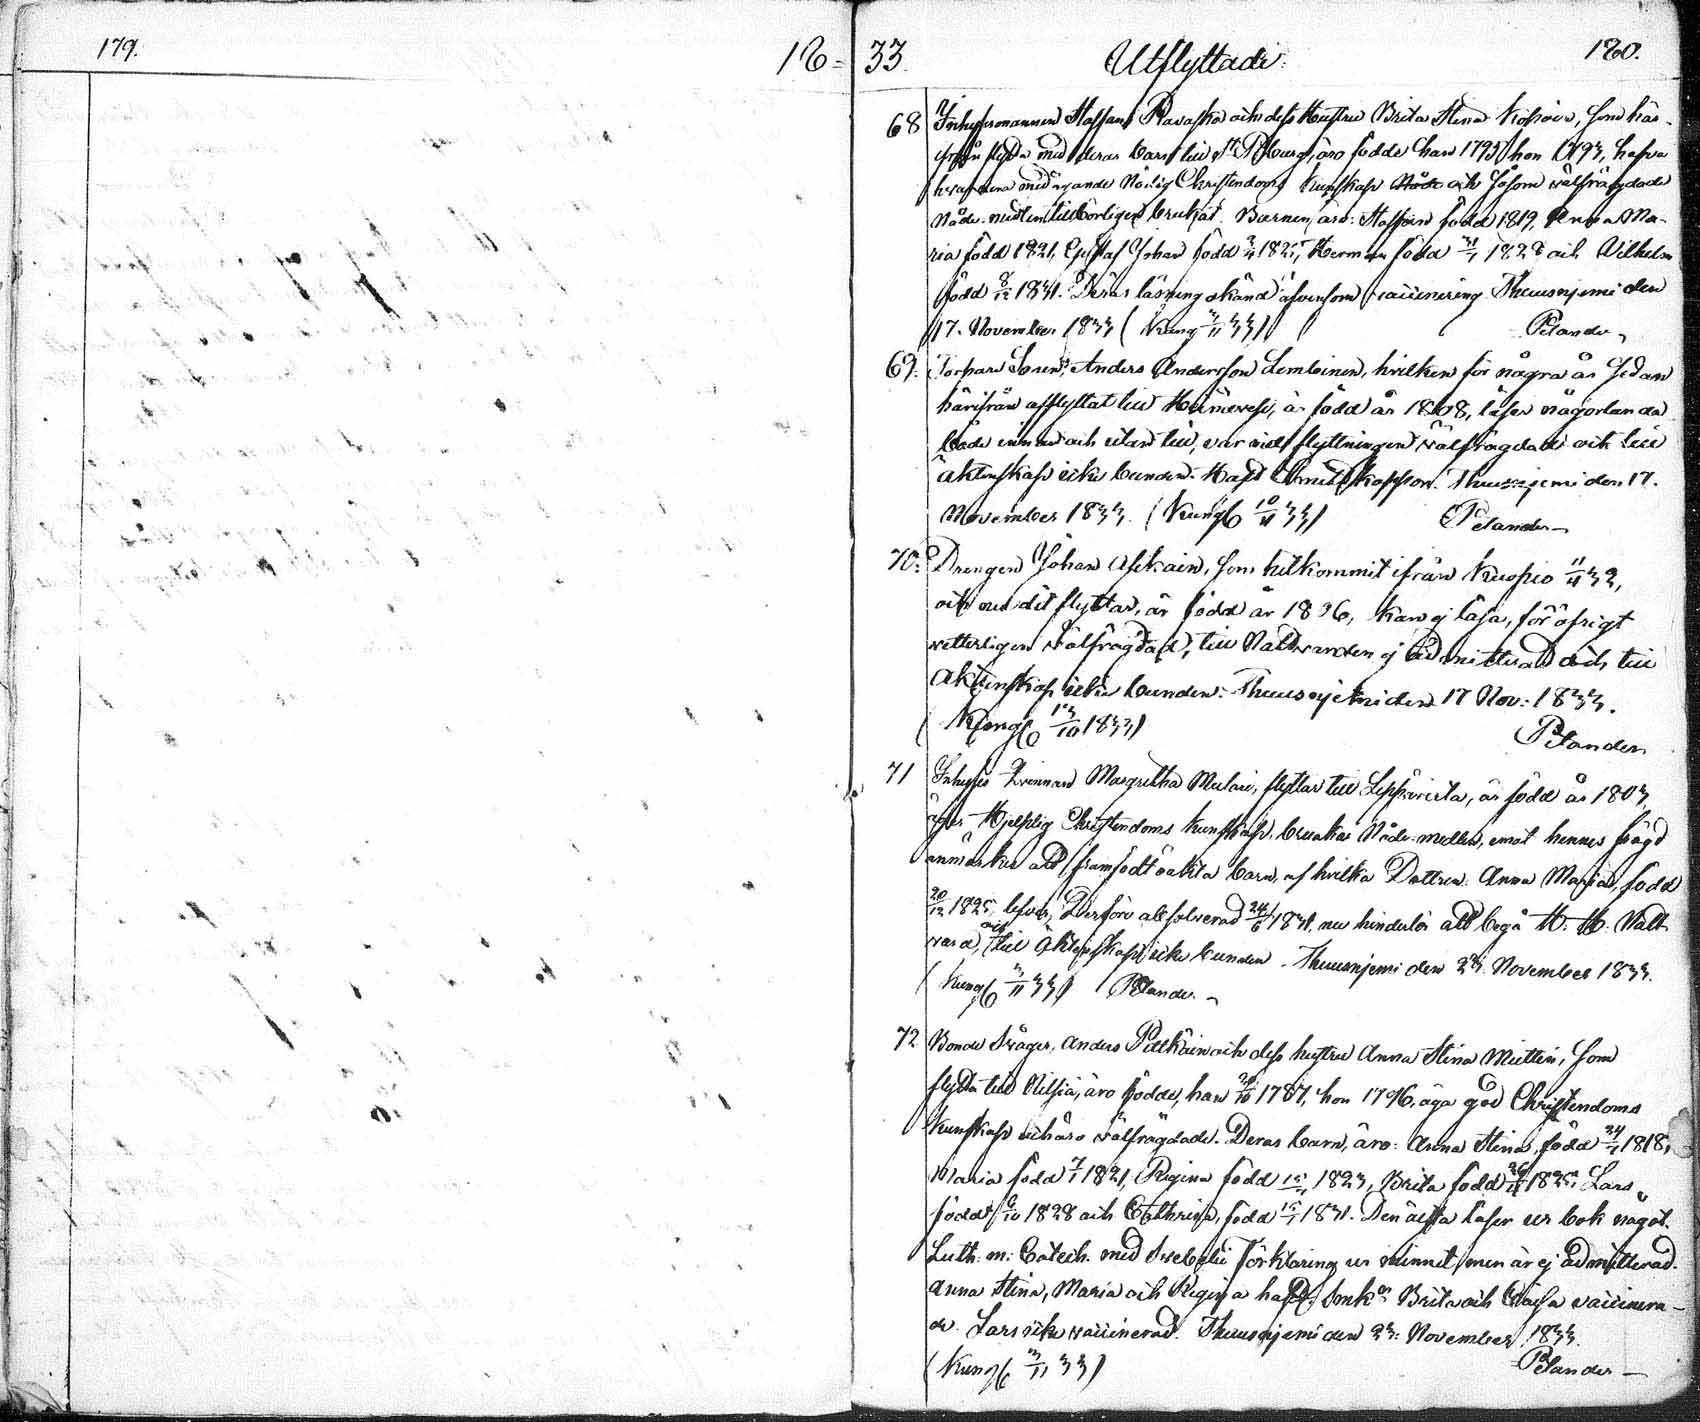 179.
18 = 33.
Utflyttade.
180.
68 Inhysesmannen Staffan och dess Hustru Brita Stina som här-
flytta med deras barn till St. äro födde han 1795 hon 1793, hafva
Christendoms kunskap och såsom välfrägdade
Nåde-medlen tillbörligen brukat. Barnen, äro: Staffan född 1819, Anna Ma-
ria född 1821, Gustaf Johan född 1825, Herman född 1828 och Vilhelm
född 8/12 1831. Deras läsning okänd äfvensom vaccinering. Thuusnjemi den
17. November 1833 ( Kung 3/11 33) Pelander
69. Torpare Sonen, Anders Andersson Lembinen, hvilken för några år sedan
härifrån afflyttat till är född år 1808, läser någorlunda
både innan och utan till, var vid flyttningen välfrägdad och till
äktenskap icke bunden. Haft Smittkoppor. Thuusnjemi den 17.
November 1833. ( Kungl 10/11 33) Pelander
70. Drengen Johan Asikain, som hitkommit ifrån Kuopio 11/11 32,
och nu dit flyttar, är född år 1816, kan ej läsa, för öfrigt
vetterligen välfrägdad, till Nattvarden ej admitterad och till
Äktenskap icke bunden. Thuusnjemi den 17 Nov: 1833.
( Kungl 13/10 1833) Pelander
71 Inhyses Qvinnan Margretha Mulari, flyttar till Leppävirta, är född år 1803
äger Hjelplig Christendoms kunskap, brukar Nåde-medlen, emot hennes frägd
anmärkes att framfödt oäkta barn, af hvilka Dottren: Anna Maria, född
20/12 1825 lefver, Derföre absolverad 24/6 1831, nu hinderlös att begå H. H. Natt-
vard, och till äktenskap icke bunden. Thuusnjemi den 23. November 1833.
( Kungl 3/11 33) Pelander
72 Bonde Svåger, Anders Pitkäin och dess hustru Anna Stina Miettin, som
flytta till Nilsiä, äro födde, han 20/10 1787, hon 1796, äga god Christendoms
kunskap och äro välfrägdade. Deras barn, äro: Anna Stina, född 24/7 1818,
Maria född 7/7 1821, Regina född 1823, Brita född 26/11 1825, Lars
född 6/10 1828 och Cathrina, född 15/7 1831. Den äldsta läser ur bok något.
Luth: m: Catech. med Svebelii Förklaring ur minnet, men är ej admitterad.
Anna Stina, Maria och Regina haft Smkor Brita och Cajsa vaccinera-
de. Lars icke vaccinerad. Thuusnjemi den 23: November 1833.
( Kungl 3/11 33) Pelander